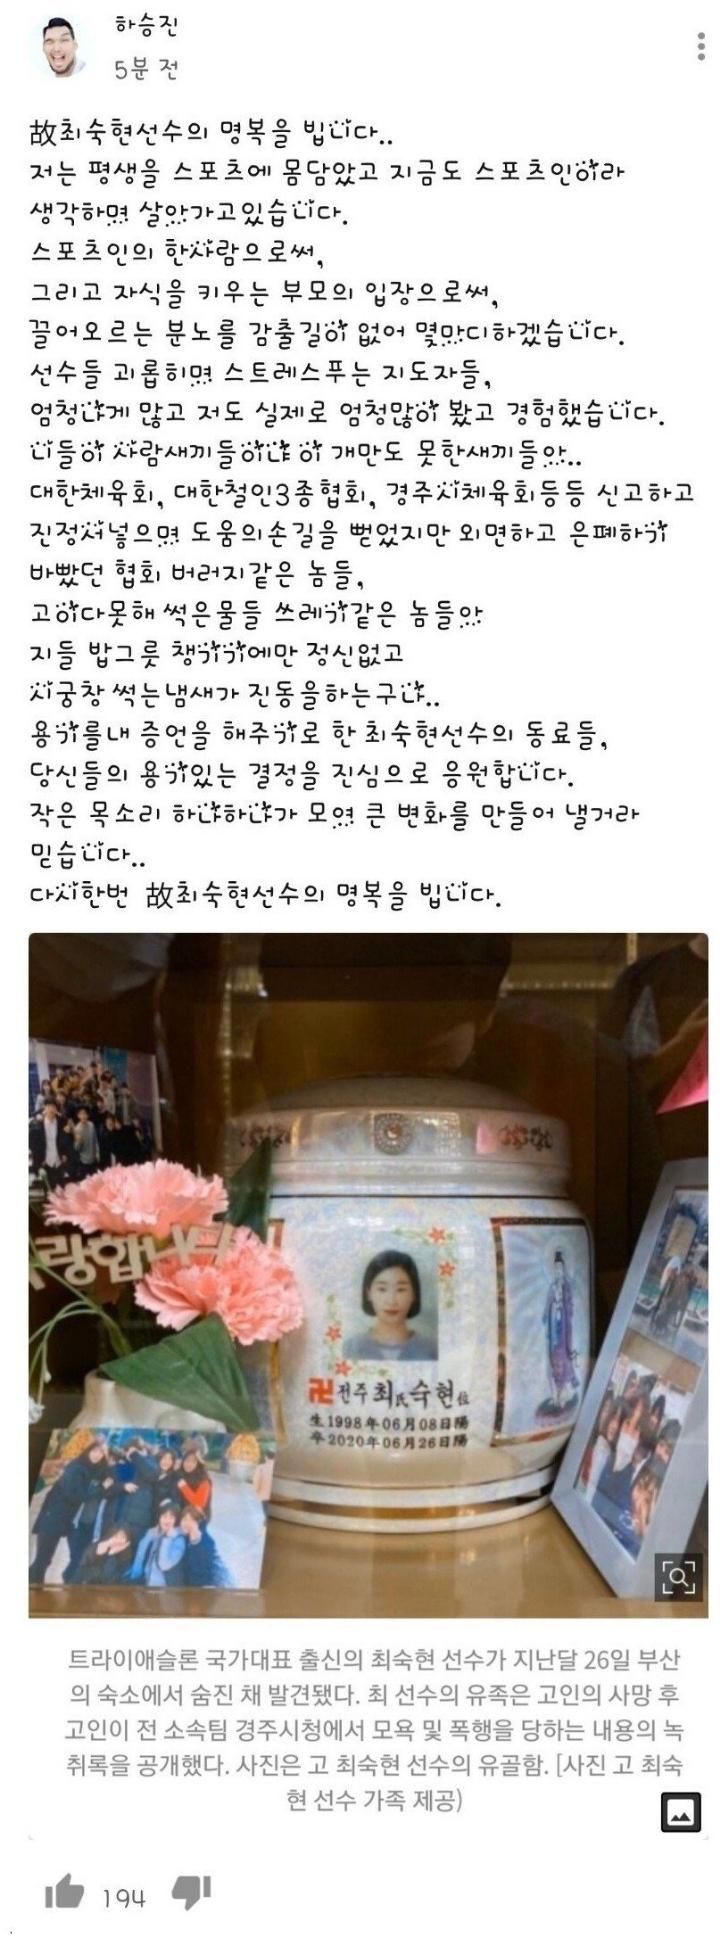 하승진
5분 전
故최숙현선수의 명복을 빕니다..
저는 평생을 스포츠에 몸담았고 지금도 스포츠인이라
생각하며 살아가고있습니다.
스포츠인의 한사람으로써,
그리고 자식을 키우는 부모의 입장으로써,
끌어오르는 분노를 감출길이 없어 몇마디하겠습니다.
선수들 괴롭히며 스트레스푸는 지도자들,
엄청나게 많고 저도 실제로 엄청많이 봤고 경험했습니다.
니들이 사람새끼들이냐 이 개만도 못한새끼들아..
대한체육회, 대한철인3종협회, 경주시체육회등등 신고하고
진정서넣으며 도움의손길을 뻗었지만 외면하고 은폐하기
바빴던 협회 버러지같은 놈들,
고이다못해 썩은물들 쓰레기같은 놈들아
지들 밥그릇 챙기기에만 정신없고
시궁창 썩는냄새가 진동을하는구나..
용기를내 증언을 해주기로 한 최숙현선수의 동료들,
당신들의 용기있는 결정을 진심으로 응원합니다.
작은 목소리 하나하나가 모여 큰 변화를 만들어 낼거라
믿습니다..
다시한번 故최숙현선수의 명복을 빕니다.
랑합니다
卍전주최氏숙현位
生1998年06月08日陽
卒2020年06月26日陽
트라이애슬론 국가대표 출신의 최숙현 선수가 지난달 26일 부산
의 숙소에서 숨진 채 발견됐다. 최 선수의 유족은 고인의 사망 후
고인이 전 소속팀 경주시청에서 모욕 및 폭행을 당하는 내용의 녹
취록을 공개했다. 사진은 고 최숙현 선수의 유골함. [사진 고 최숙
현 선수 가족 제공)
194